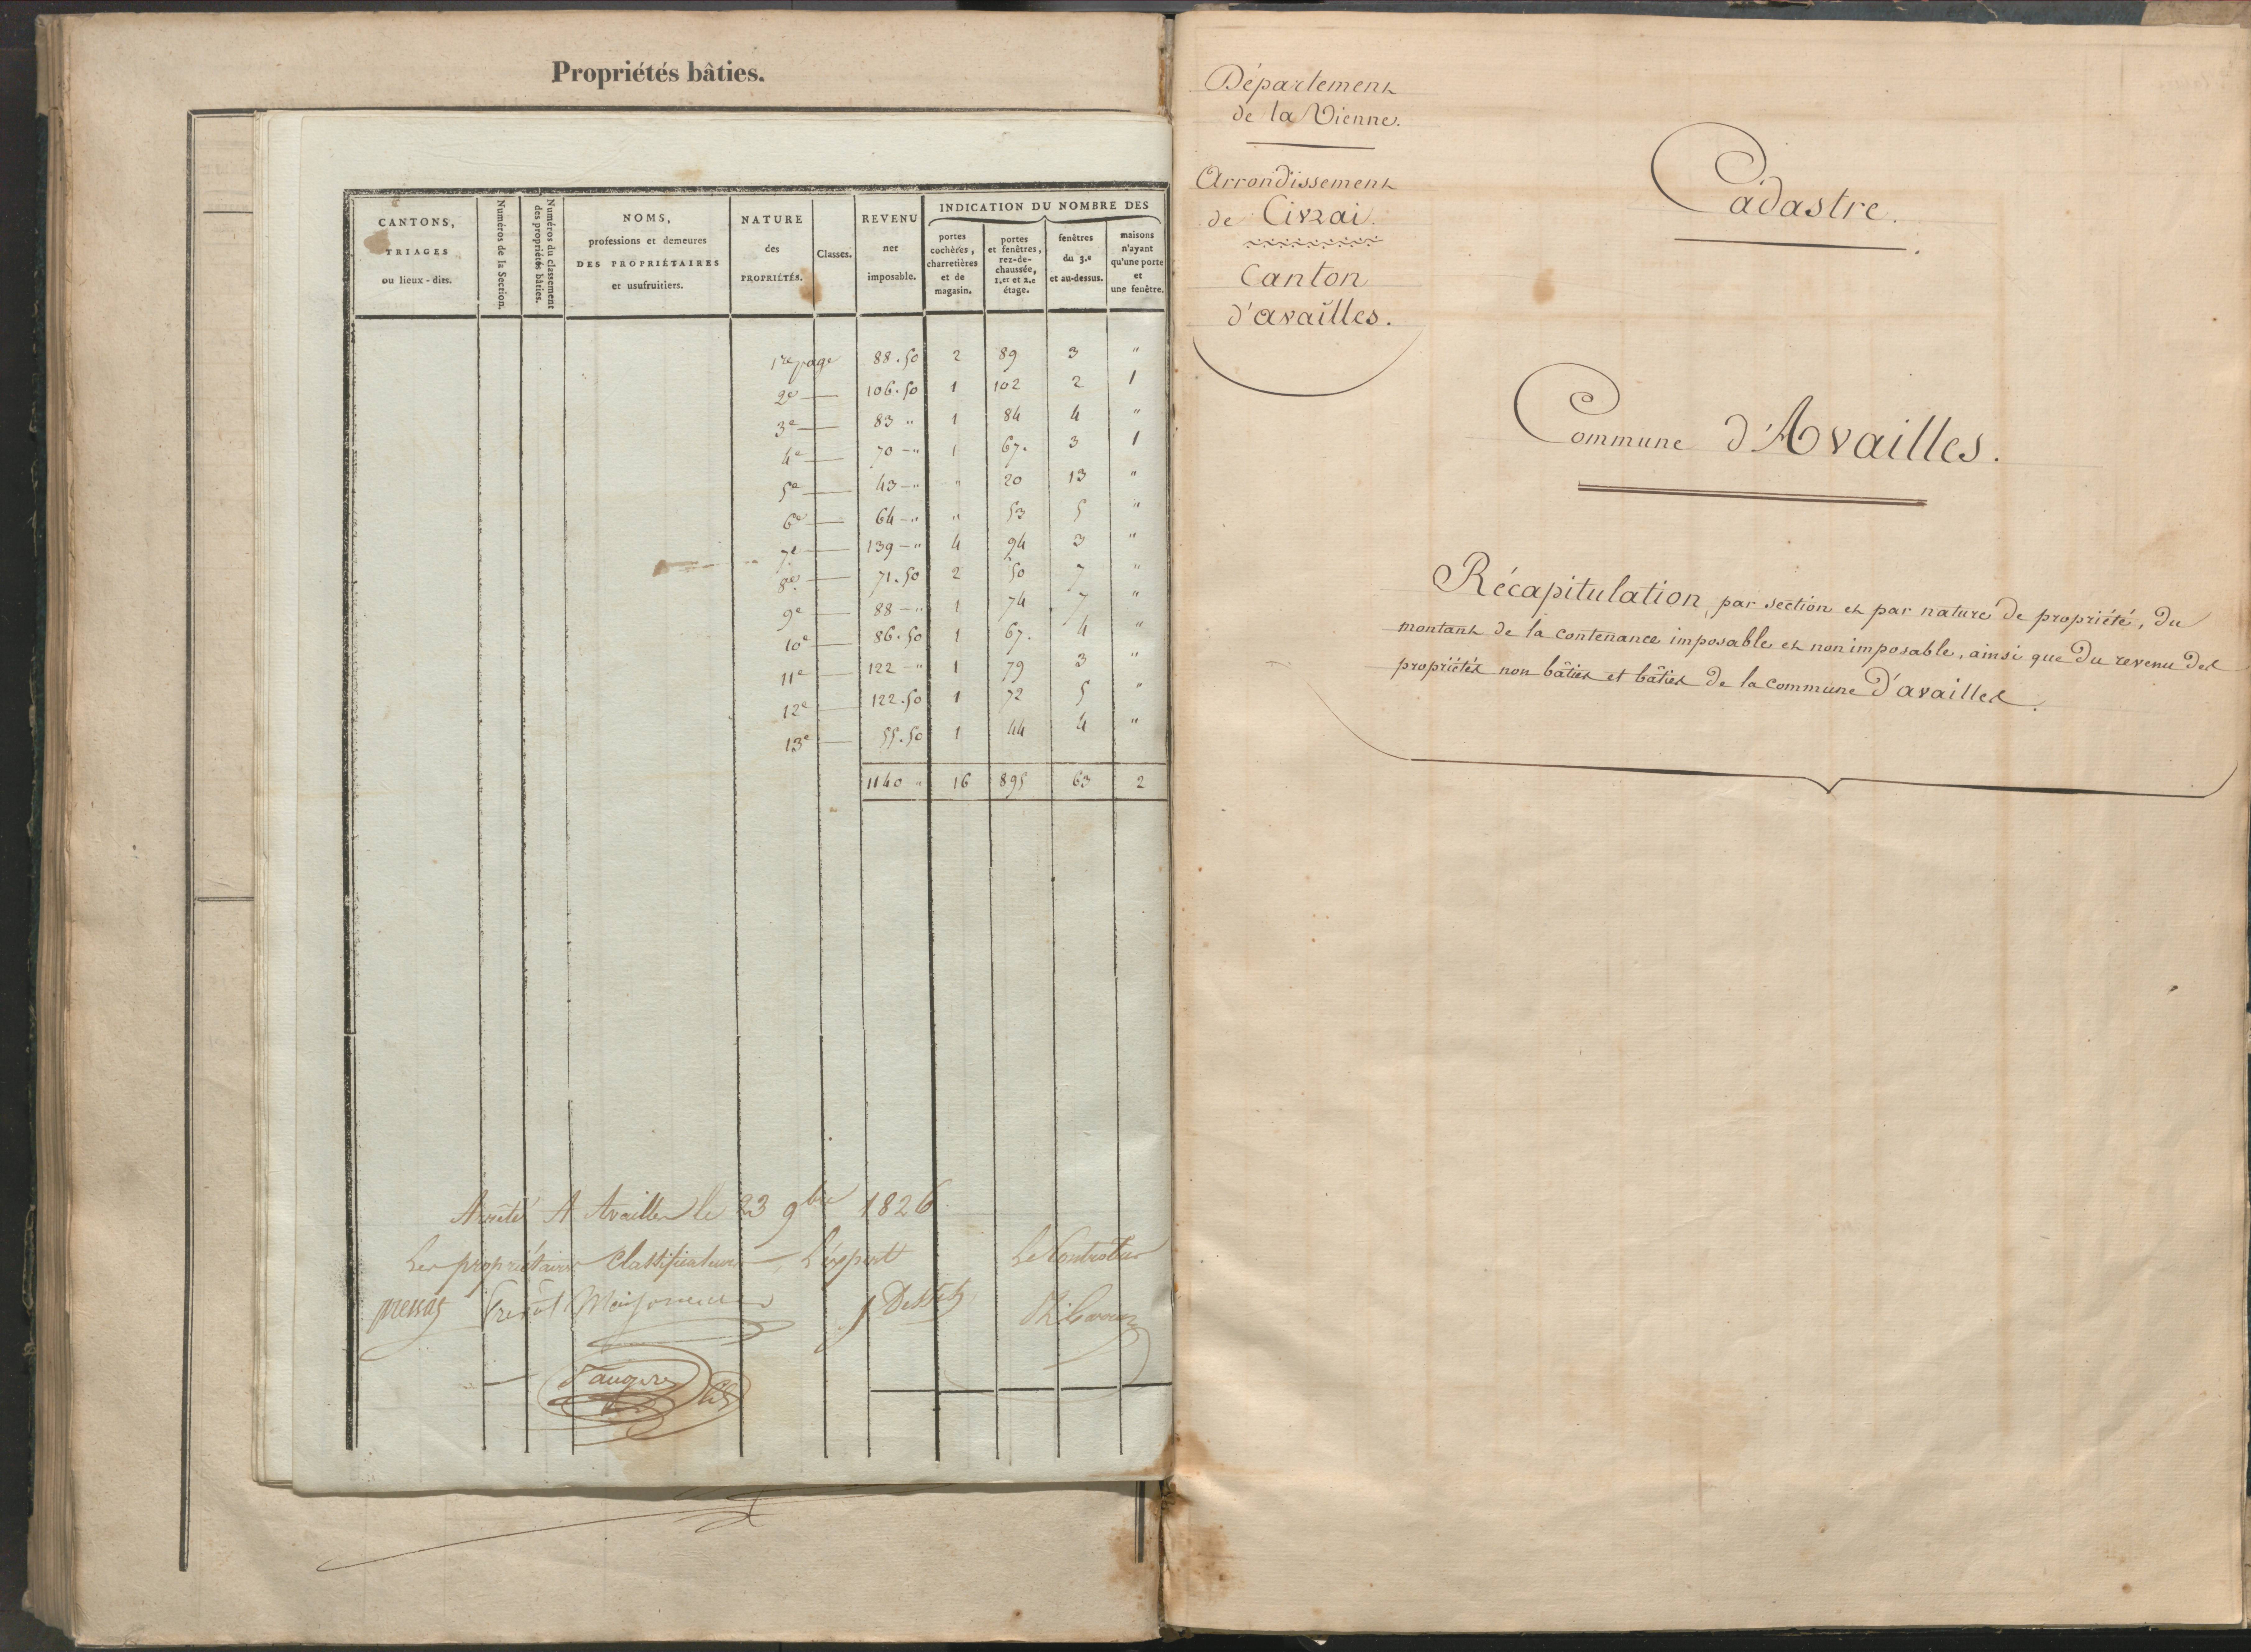 Propriétés bâties.
CANTONS,
TRIAGES
ou lieux-dits.
Numéros de la Section.
Numéros du classement
des propriétés bâties.
NOMS,
professions et demeures
DES PROPRIÉTAIRES
et usufruitiers.
NATURE
des
PROPRIÉTÉS.
Classes.
REVENU
net
imposable.
INDICATION DU NOMBRE DES
portes
cochères,
charretières
et de
magasin.
portes
et fenêtres,
rez-de-
chaussée,
1.er et 2.e
étage.
fenêtres
du 3.e
et au-dessus.
maisons
n'ayant
qu'une porte
et
une fenêtre.
1re page 88.50 2 89 3 "
2e — 106.50 1 102 2 1
3e — 83 " 1 84 4 "
4e — 70 — " 1 67. 3 1
5e — 43 — " " 20 13 "
6e — 64 — " " 53 5 "
7e — 139 — " 4 94 3 "
8e — 71.50 2 50 7 "
9e — 88 — " 1 74 7 "
10e — 86.50 1 67. 4 "
11e — 122 — " 1 79 3 "
12e — 122.50 1 72 5 "
13e — 55.50 1 44 4 "
1140 " 16 895 63 2
Arrêté A Availles le 23 9bre 1826
Les propriétaires Classificateurs, L'expert Le Controleur
Faugere
Département
de la Vienne.
Arrondissement
de Civrai.
Canton
d'availles.
Cadastre.
Commune d'Availles.
Récapitulation, par section et par nature de propriété, du
montant de la contenance imposable et non imposable, ainsi que du revenu des
propriétés non bâties et bâties de la commune d'availles.